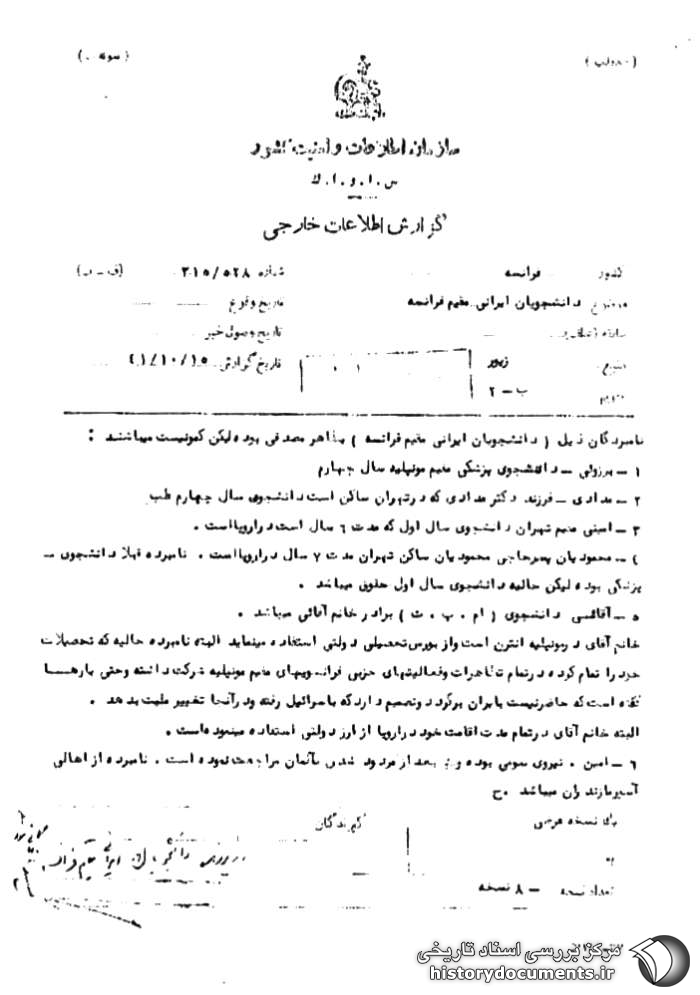 سازمان اطلاعات و امنیت کشور
س.ا.و.ا.ک
گزارش اطلاعات خارجی
کشور فرانسه شماره ۳۱۵/۵۲۸
موضوع دانشجویان ایرانی مقیم فرانسه تاریخ وقوع
تاریخ وصول خبر
منبع زیور تاریخ گزارش ۴۱/۱۰/۱۵
ب - ۲
نامبردگان ذیل ( دانشجویان ایرانی مقیم فرانسه ) بظاهر مصدقی بوده لیکن کمونیست میباشند :
۱ - برزوئی - دانشجوی پزشکی مقیم مونپلیه سال چهارم
۲ - مدادی - فرزند دکتر مدادی که در تهران ساکن است دانشجوی سال چهارم طب
۳ - امینی مقیم تهران دانشجوی سال اول که مدت ٦ سال است در اروپا است .
٤ - محمودیان پسر حاجی محمودیان ساکن تهران مدت ۷ سال در اروپا است . نامبرده قبلا دانشجوی -
پزشکی بوده لیکن حالیه دانشجوی سال اول حقوق میباشد .
۵ - آقائی دانشجوی ( ام . پ . ث ) برادر خانم آقائی میباشد .
خانم آقای در مونپلیه انترن است و از بورس تحصیلی دولتی استفاده مینماید البته نامبرده حالیه که تحصیلات
خود را تمام کرده در تمام تظاهرات و فعالیتهای حزبی فرانسویهای مقیم مونپلیه شرکت داشته و حتی بارها
گفته است که حاضر نیست بایران برگردد و تصمیم دارد که باسرائیل رفته و در آنجا تغییر ملیت بدهد .
البته خانم آقای در تمام مدت اقامت خود در اروپا از ارز دولتی استفاده مینموده است .
٦ - امین . نیروی سومی بوده و بعد از مردود شدن بآلمان مراجعت نموده است . نامبرده از اهالی
مازندران میباشد . ح
گیرندگان
تعداد نسخه - ۸ نسخه
دانشجویان ایرانی مقیم فرانسه
مرکز بررسی اسناد تاریخی
historydocuments.ir